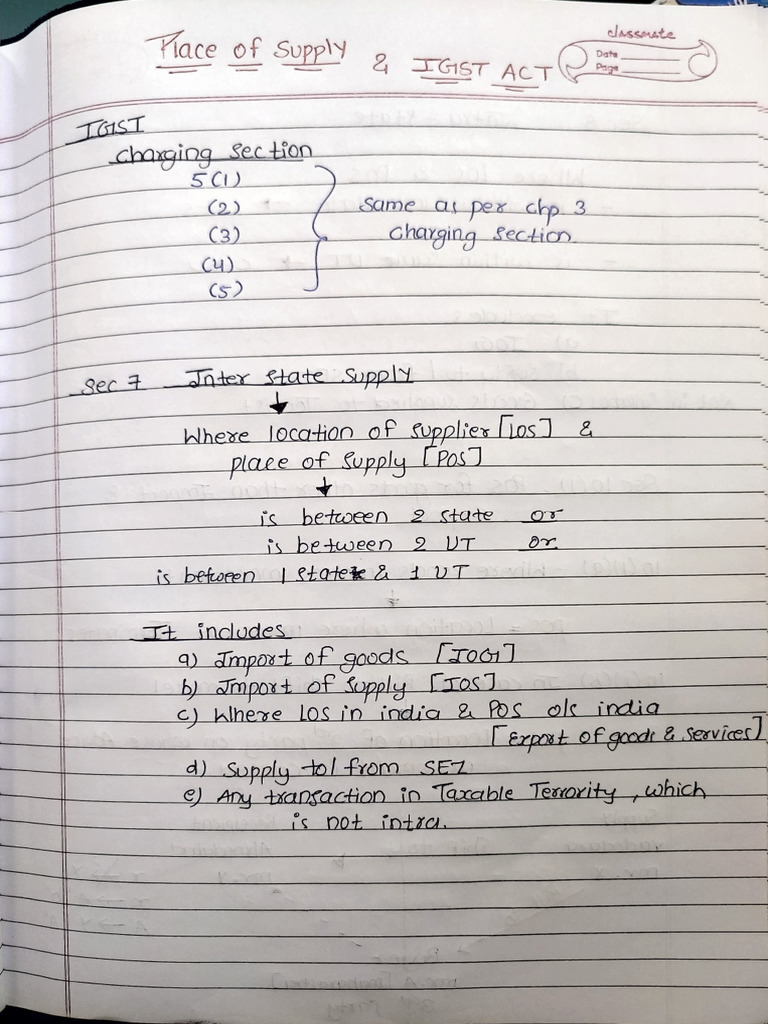 classmate
Date
Page
Place of Supply & IGST ACT
IGST
charging section
5(1)
(2)
(3)
(4)
(5)
Same as per chp 3
charging section.
Sec 7 Inter state supply
Where location of supplier [LOS] &
place of supply [POS]
is between 2 state or
is between 2 UT or
is between 1 state & 1 UT
It includes
a) Import of goods [IOG]
b) Import of supply [IOS]
c) Where LOS in india & POS o/s india
[Export of goods & services]
d) Supply to/ from SEZ
e) Any transaction in Taxable Terrority, which
is not intra.